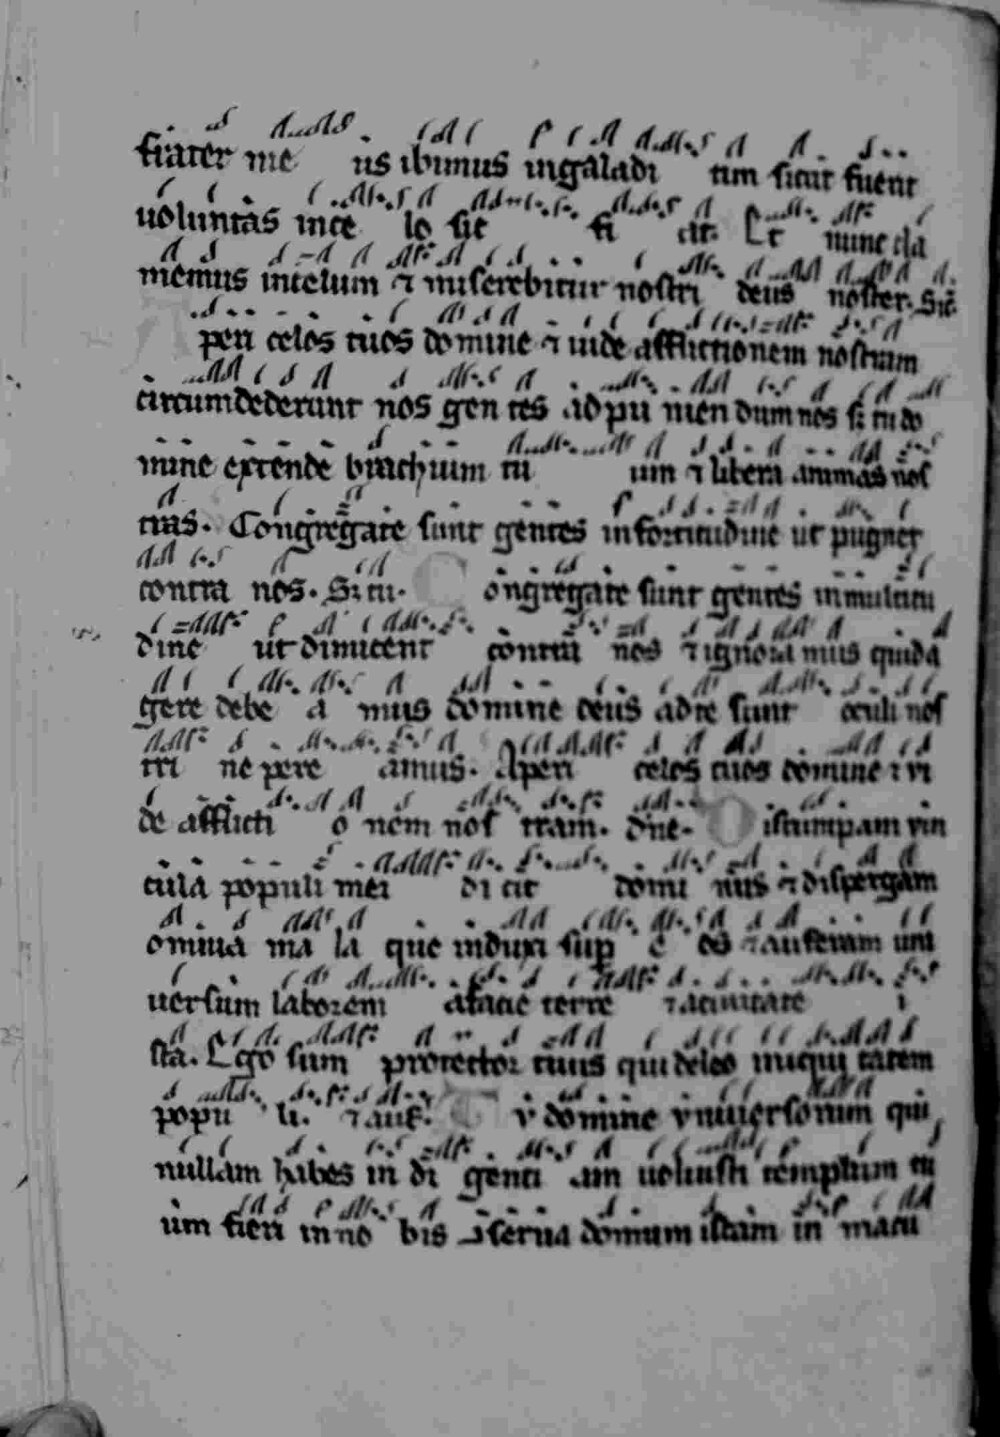 frater me us ibimus in galadi tim sicut fuerit
uoluntas in ce lo sic fi at. Et nunc cla
memus in celum ⁊ miserebitur nostri deus noster. Sic
Aperi celos tuos domine ⁊ uide afflictionem nostram
circumdederunt nos gen tes ad pu nien dum nos si tu do
mine extende brachium tu um ⁊ libera animas nos
tras. Congregate sunt gentes in fortitudine ut pugnet
contra nos. Si tu. Congregate sunt gentes in multitu
dine ut dimicent contra nos ⁊ ignora mus quid a
gere debe a mus domine deus ad te sunt oculi nos
tri ne pere amus. Aperi celos tuos domine ⁊ vi
de afflicti o nem nos tram. dne. Disrumpam vin
cula populi mei di cit domi nus ⁊ dispergam
omnia ma la que induxi sup e os ⁊ auferam uni
uersum laborem a facie terre ⁊ a ciuitate i
sta. Ego sum protector tuus qui deleo iniqui tatem
popu li. ⁊ auf. Tu domine vniuersorum qui
nullam habes in di genti am uoluisti templum tu
um fieri in no bis ⁊ serua domum istam in macu